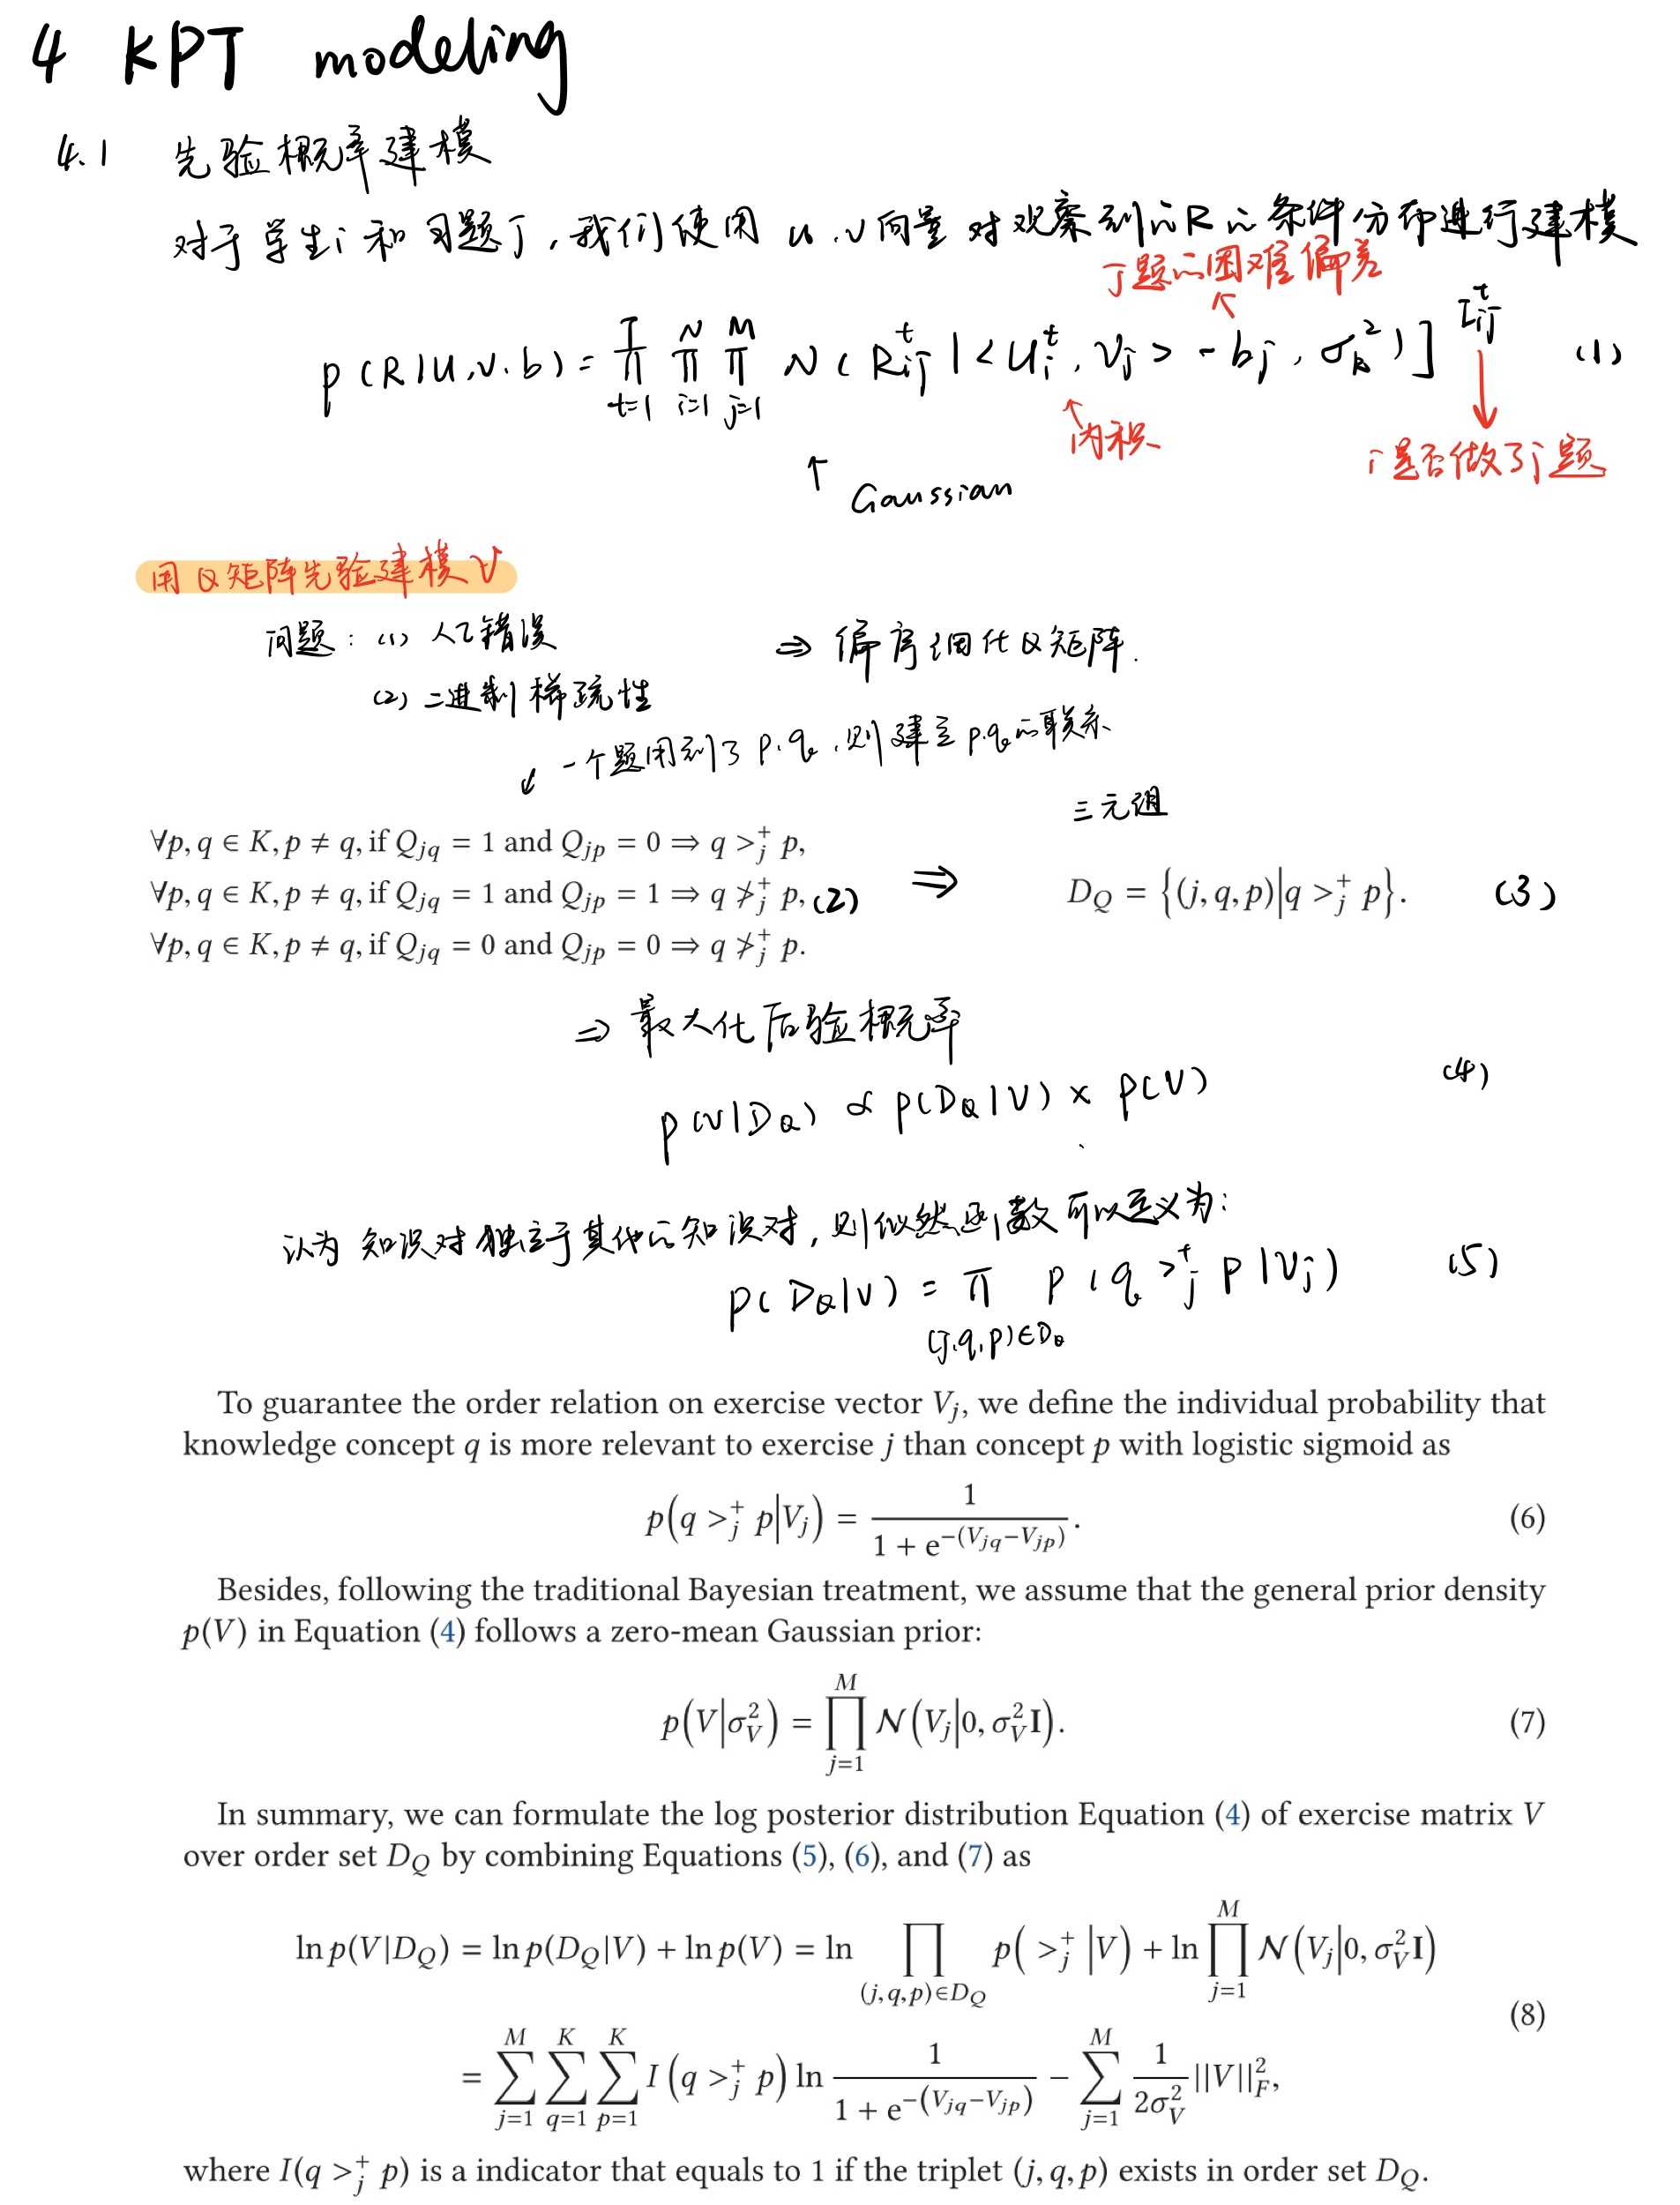 4 KPT modeling
4.1 先验概率建模
对于学生i和习题j,我们使用 u.v向量 对观察到的R的条件分布进行建模
j题的困难偏差
p(R|U,V,b) = ∏_{t=1}^{T} ∏_{i=1}^{N} ∏_{j=1}^{M} N(R_{ij}^{t} | <U_i^t, V_j> - b_j, σ_R^2)]^{I_{ij}^t} (1)
↑内积
i是否做了j题
↑ Gaussian
用Q矩阵先验建模V
问题: (1) 人工错误 ⇒ 偏序细化Q矩阵.
(2) 二进制稀疏性
↙ 一个题用到了p.q,则建立p.q的联系
三元组
∀p, q ∈ K, p ≠ q, if Q_{jq} = 1 and Q_{jp} = 0 ⇒ q >_j^+ p,
∀p, q ∈ K, p ≠ q, if Q_{jq} = 1 and Q_{jp} = 1 ⇒ q ≯_j^+ p, (2) ⇒ D_Q = {(j, q, p)|q >_j^+ p}. (3)
∀p, q ∈ K, p ≠ q, if Q_{jq} = 0 and Q_{jp} = 0 ⇒ q ≯_j^+ p.
⇒ 最大化后验概率
p(V|D_Q) ∝ p(D_Q|V) × p(V) (4)
认为 知识对独立于其他的知识对,则似然函数可以定义为:
p(D_Q|V) = ∏_{(j,q,p)∈D_Q} p(q >_j^+ p|V_j) (5)
To guarantee the order relation on exercise vector V_j, we define the individual probability that
knowledge concept q is more relevant to exercise j than concept p with logistic sigmoid as
p(q >_j^+ p|V_j) = \frac{1}{1 + e^{-(V_{jq}-V_{jp})}}. (6)
Besides, following the traditional Bayesian treatment, we assume that the general prior density
p(V) in Equation (4) follows a zero-mean Gaussian prior:
p(V|σ_V^2) = ∏_{j=1}^{M} N(V_j|0, σ_V^2 I). (7)
In summary, we can formulate the log posterior distribution Equation (4) of exercise matrix V
over order set D_Q by combining Equations (5), (6), and (7) as
ln p(V|D_Q) = ln p(D_Q|V) + ln p(V) = ln ∏_{(j,q,p)∈D_Q} p(>_j^+ |V) + ln ∏_{j=1}^{M} N(V_j|0, σ_V^2 I)
= ∑_{j=1}^{M} ∑_{q=1}^{K} ∑_{p=1}^{K} I(q >_j^+ p) ln \frac{1}{1 + e^{-(V_{jq}-V_{jp})}} − ∑_{j=1}^{M} \frac{1}{2σ_V^2} ||V||_F^2, (8)
where I(q >_j^+ p) is a indicator that equals to 1 if the triplet (j, q, p) exists in order set D_Q.